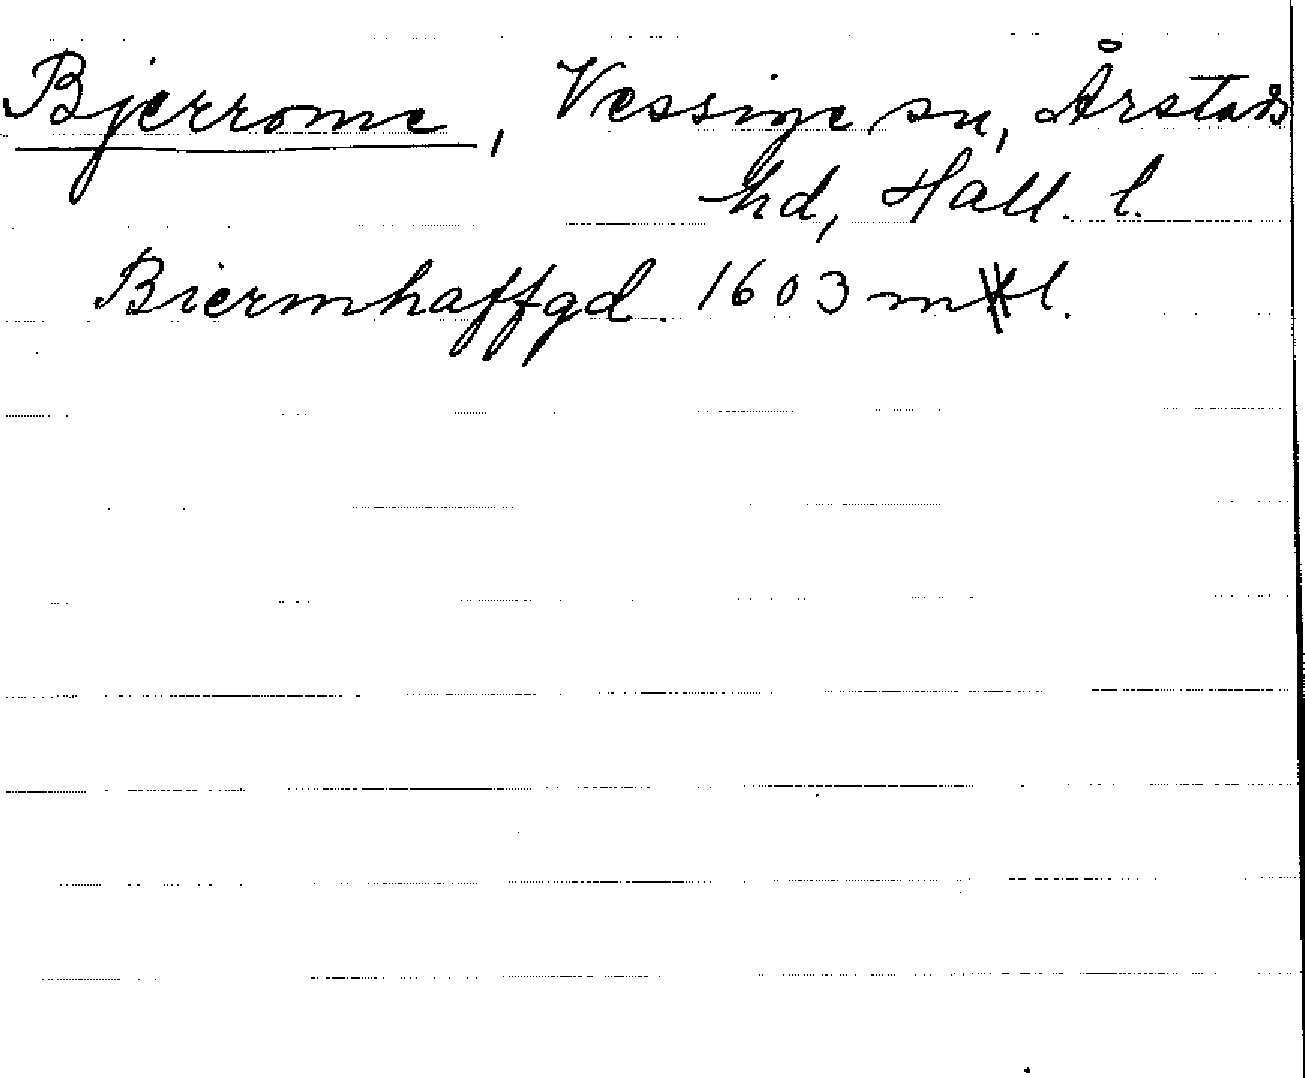 Bjärrome, Vessige sn, Årstads
hd, Hall. l.
Biermhaffgd. 1603 ml.